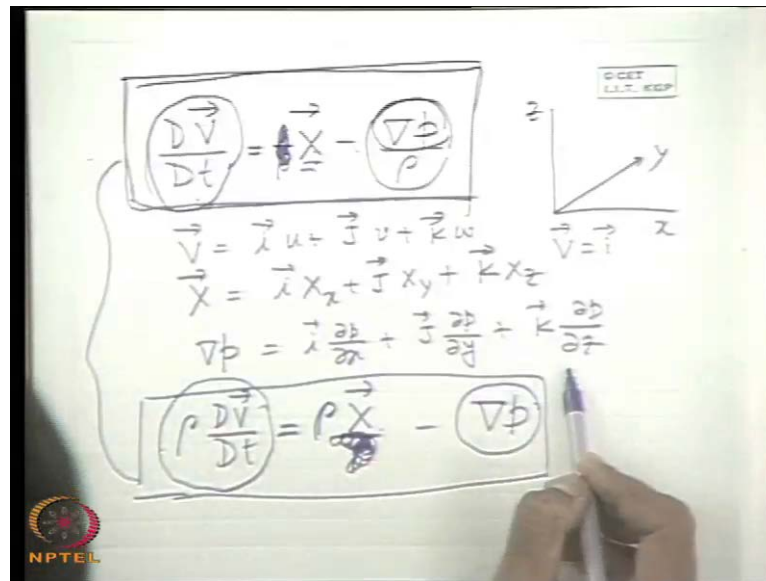 ©CET
I.I.T. KGP
DV⃗/Dt = X⃗ - ∇p/ρ
z
y
x
V⃗ = i⃗
V⃗ = i⃗ u + j⃗ v + k⃗ w
X⃗ = i⃗ Xx + j⃗ Xy + k⃗ Xz
∇p = i⃗ ∂p/∂x + j⃗ ∂p/∂y + k⃗ ∂p/∂z
ρ DV⃗/Dt = ρ X⃗ - ∇p
NPTEL